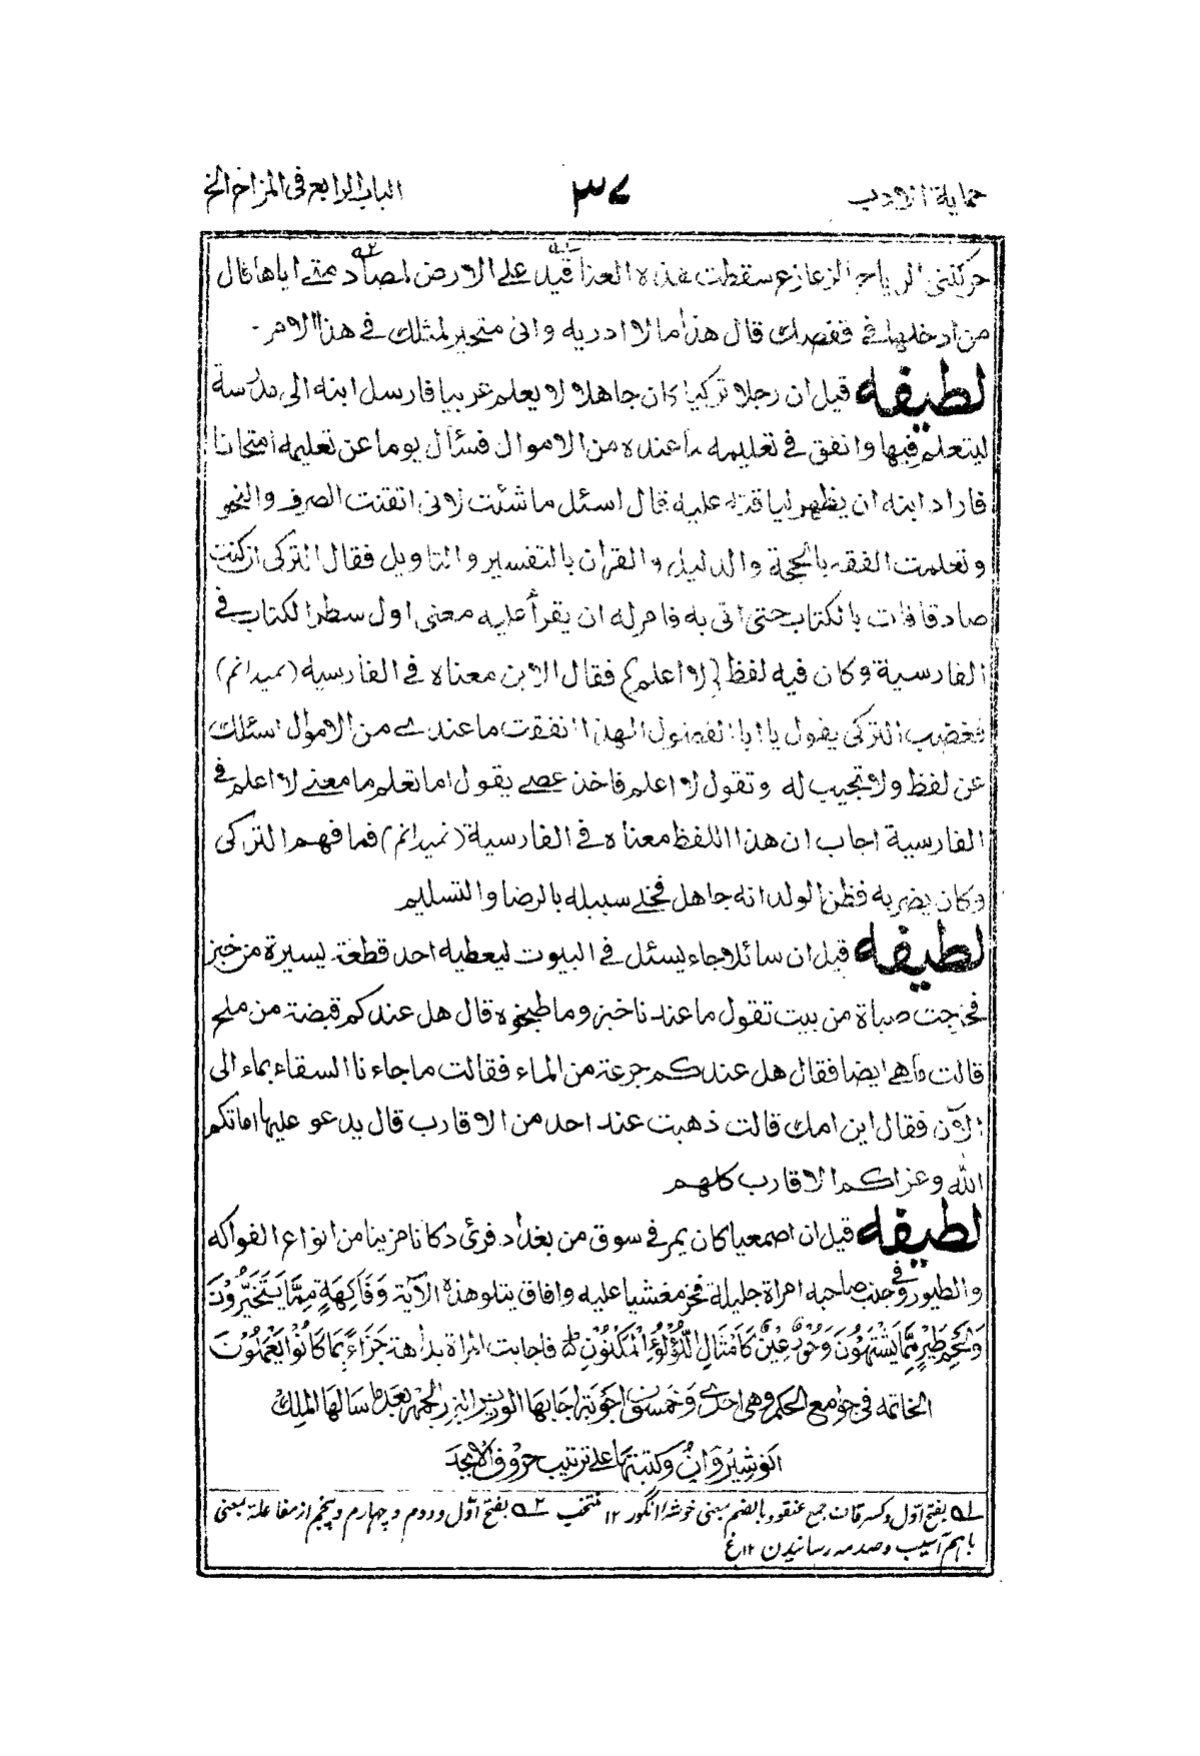 حماية الادب ٣٧ الباب الرابع فى المزاح الخ
حركتنى الرياح الزعازع سقطت هذه العناقيد على الارض لمصادمتے اياها قال
من ادخلها فى قفصك قال هذا ما لا ادريه وانى متحير لمثلك فے هذا الامر۔
لطيفه قيل ان رجلا تركيا كان جاهلا لا يعلم عربيا فارسل ابنه الى مدرسة
ليتعلم فيها وانفق فے تعليمه ما عنده من الاموال فسئال يوما عن تعليمه امتحانا
فاراد ابنه ان يظهر لياقته عليه قال اسئل ما شئت لانى اتقنت الصرف والنحو
وتعلمت الفقه بالحجة والدليل والقرآن بالتفسير والتاويل فقال التركى ان كنت
صادقا فات بالكتاب حتى اتى به فامر له ان يقرأ عليه معنى اول سطر الكتاب فے
الفارسية وكان فيه لفظ (لا اعلم) فقال الابن معناه فے الفارسية (نميدانم)
فغضب التركى يقول يا ابا الفضول الهذا انفقت ما عندے من الاموال اسئلك
عن لفظ ولا تجيب له وتقول لا اعلم فاخذ عصے يقول اما تعلم ما معنے لا اعلم فے
الفارسية اجاب ان هذا اللفظ معناه فے الفارسية (نميدانم) فما فهم التركى
وكان يضربه فظن الولد انه جاهل فخلے سبيله بالرضا والتسليم
لطيفه قيل ان سائلا جاء يسئل فے البيوت ليعطيه احد قطعة يسيرة من خبز
فخرجت صباة من بيت تقول ما عندنا خبز وما طبخوه قال هل عندكم قبضة من ملح
قالت ما هے ايضا فقال هل عندكم جرعة من الماء فقالت ما جاءنا السقاء بماء الى
الآن فقال اين امك قالت ذهبت عند احد من الاقارب قال يدعو عليها اماتكم
الله وعزاكم الاقارب كلهم
لطيفه قيل ان اصمعيا كان يمر فے سوق من بغداد فرئ دكانا مزينا من انواع الفواكه
والطيور وفے جنب صاحبه امراة جليلة فخر مغشيا عليه وافاق يتلو هذه الآية وَفَاكِهَةٍ مِمَّا يَتَخَيَّرُوْنَ
وَلَحْمِ طَيْرٍ مِمَّا يَشْتَهُوْنَ وَحُوْرٌ عِيْنٌ كَاَمْثَالِ اللُّؤْلُؤِ الْمَكْنُوْنِ ط فاجابت المراة بداهة جَزَاءً بِمَا كَانُوْا يَعْمَلُوْنَ
الخاتمه فى جوامع الحكم وهى احدے وخمسون اجوبة اجابها الوزير البزرجمهر بعد ما سالها الملك
انوشيروان وكتبتها على ترتيب حروف الابجد
لہ بفتح اول وكسر قاف جمع عنقود بالضم بمعنى خوشۂ انگور ١٢ منتخب ٢ہ بفتح اول ودوم وچهارم وپنجم از مفاعلة بمعنى
باهم آسيب وصدمه رسانيدن ١٢ غ